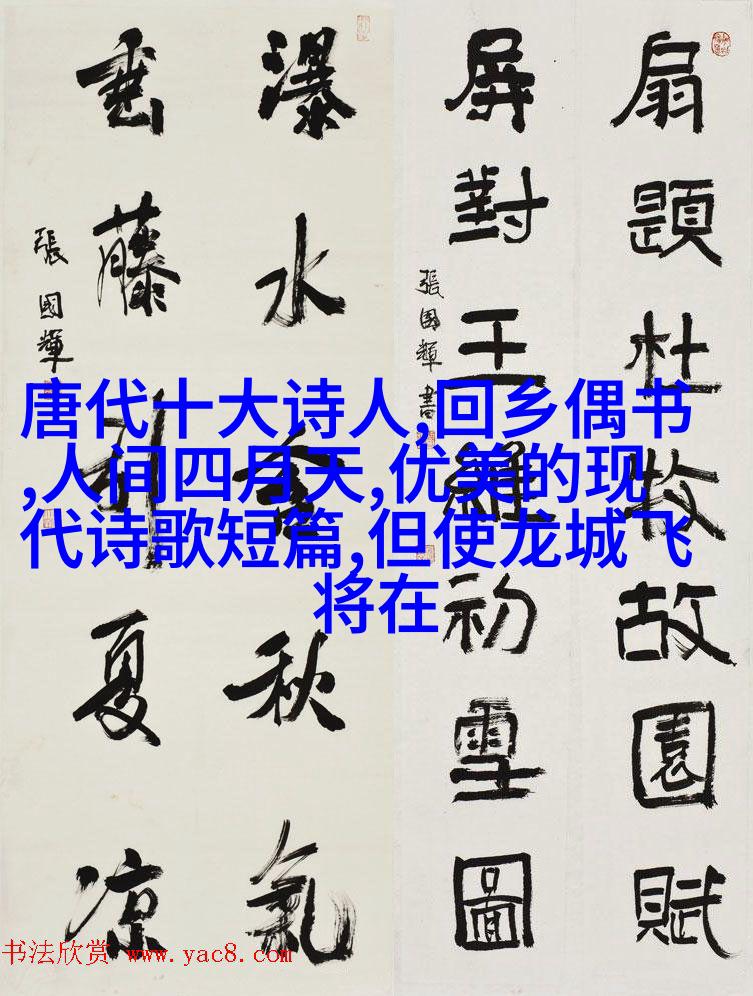 扇題杜牧故園賦
屏對王維初雪圖
張國輝書
瀑水含秋氣
垂藤引夏涼
張國輝
唐代十大诗人,回乡偶书
,人间四月天,优美的现
代诗歌短篇,但使龙城飞
将在
书法欣赏 www.yac8.com